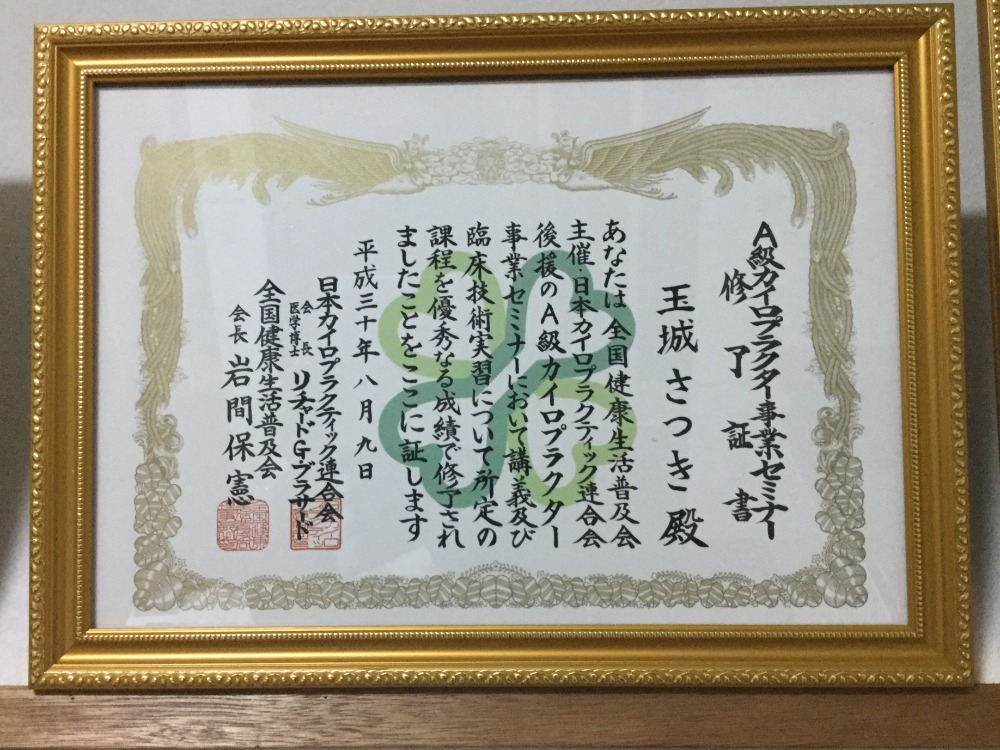 A級カイロプラクター事業セミナー
修了証書
玉城さつき殿
あなたは全国健康生活普及会
主催・日本カイロプラクティック連合会
後援のA級カイロプラクター
事業セミナーにおいて講義及び
臨床技術実習について所定の
課程を優秀なる成績で修了され
ましたことをここに証します
平成三十年八月九日
日本カイロプラクティック連合会
会長
医学博士 リチャードGブラサード
全国健康生活普及会
会長 岩間保憲